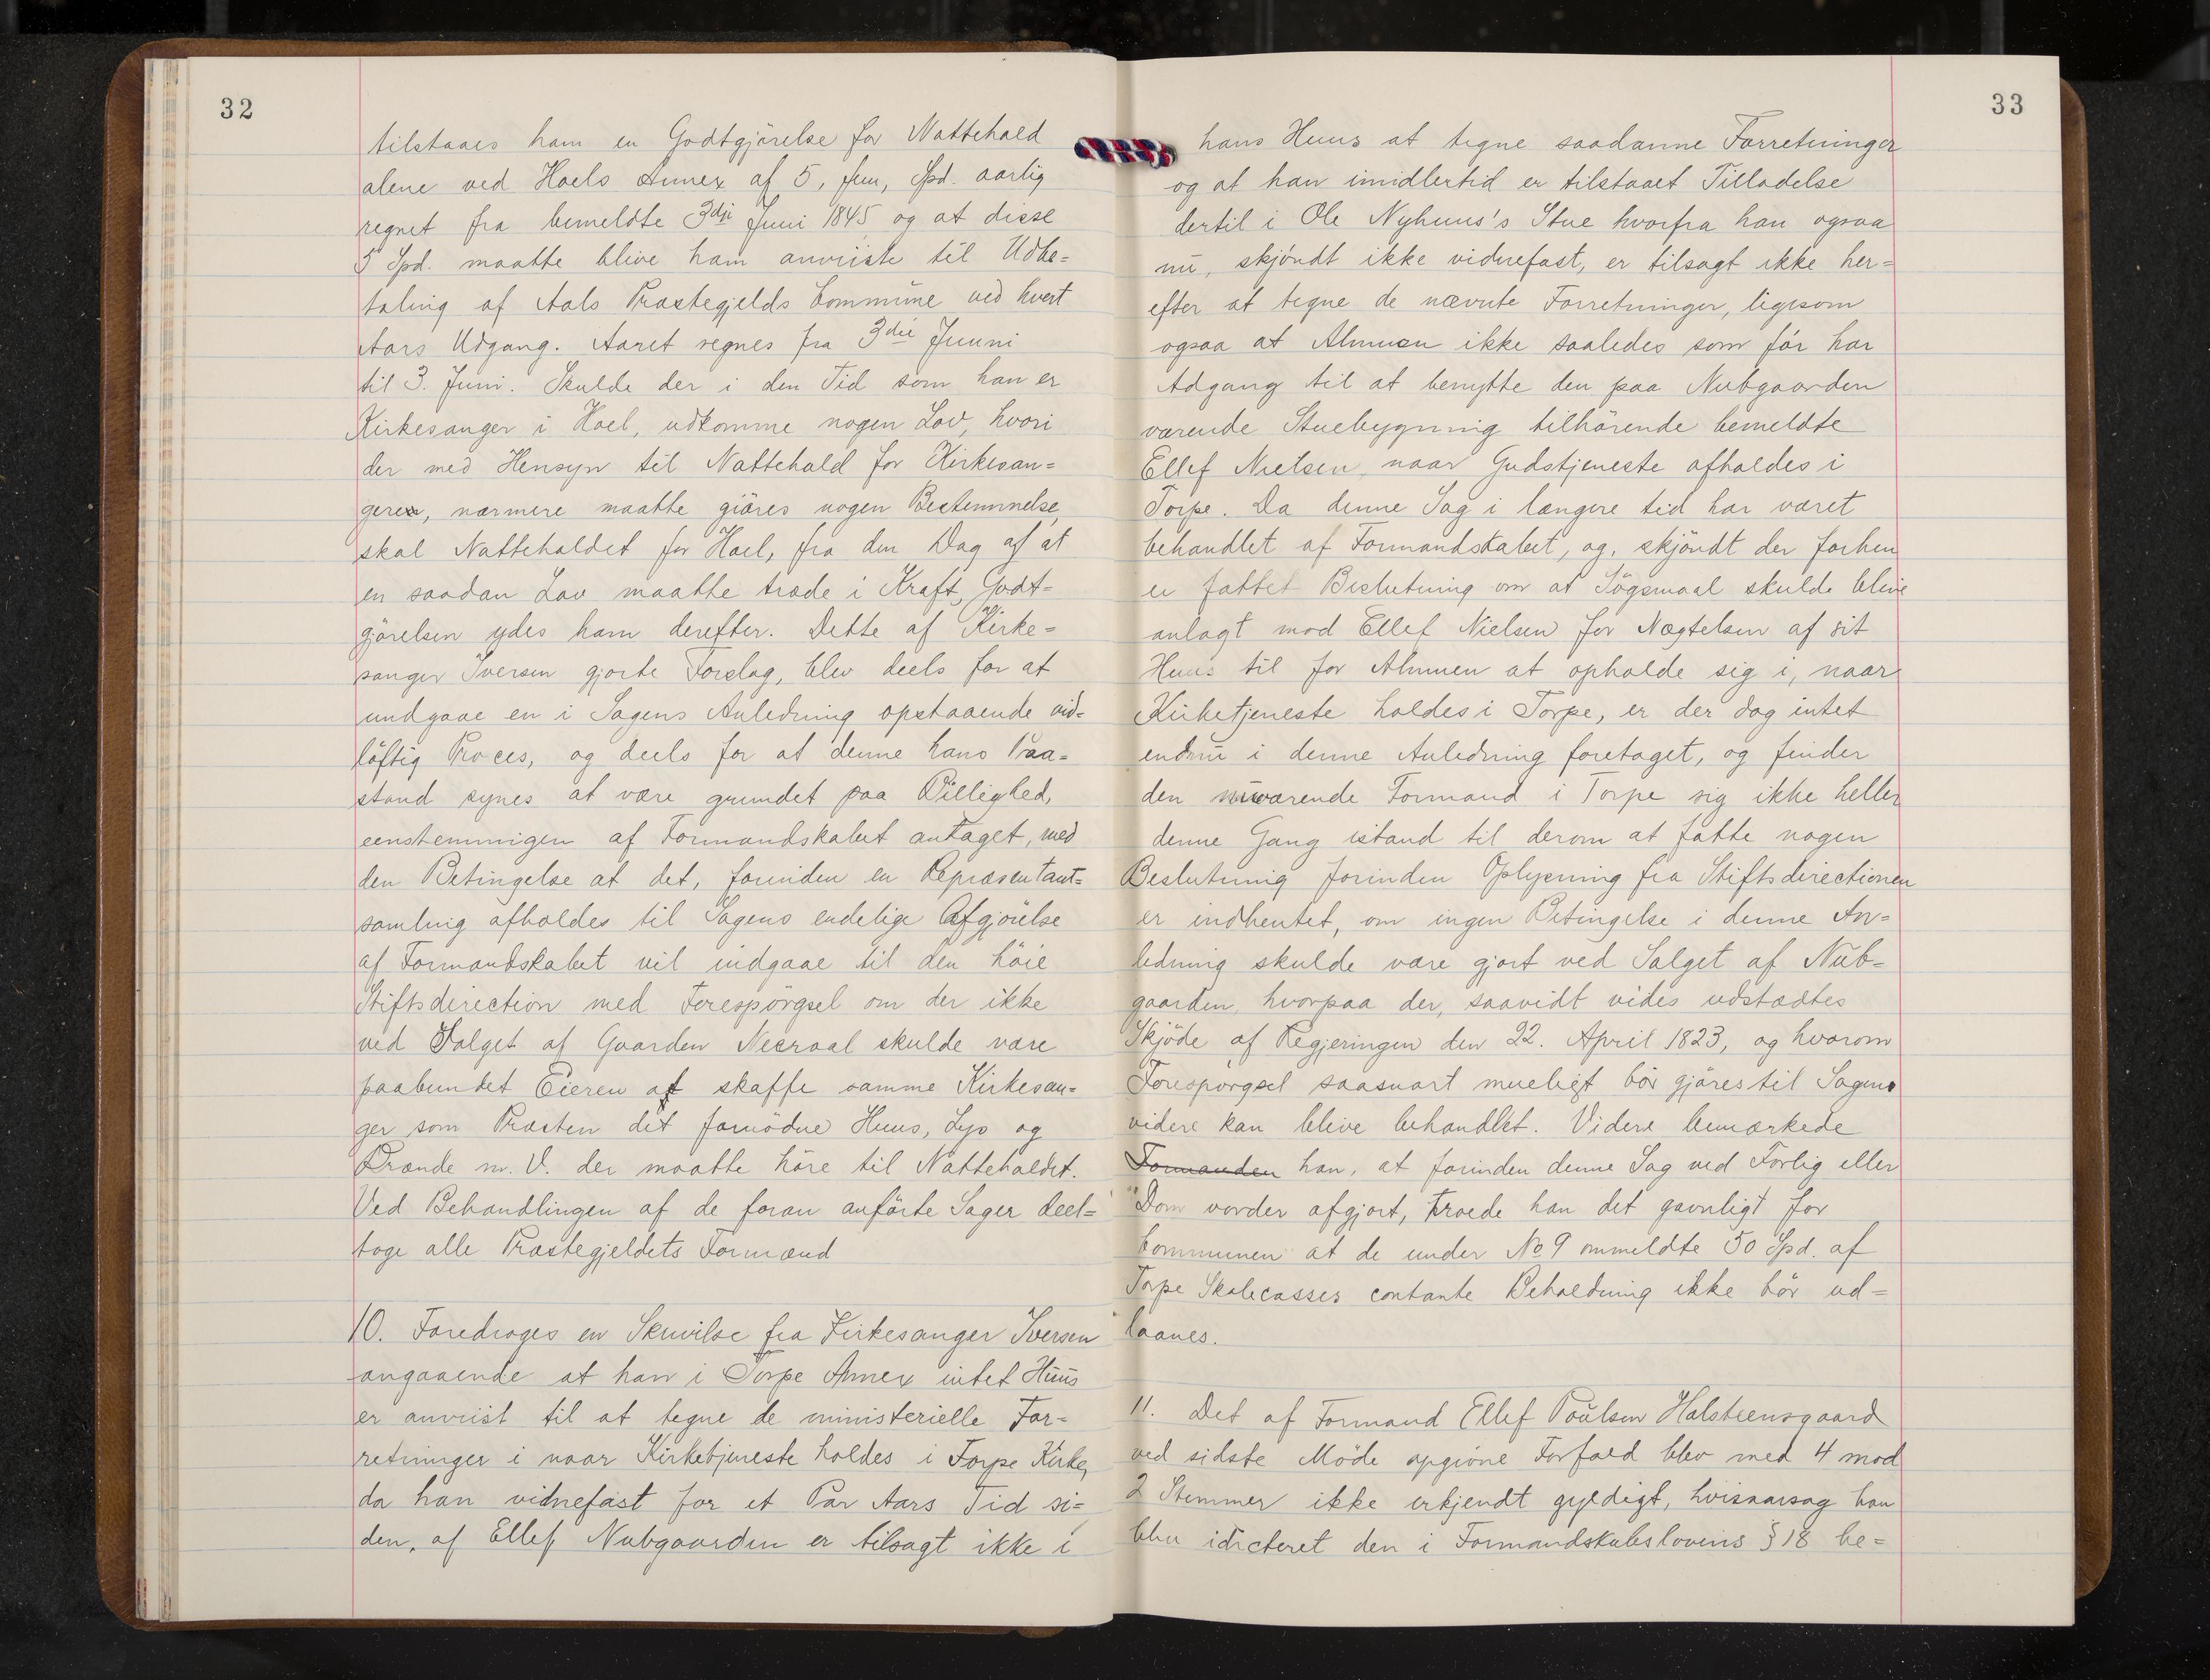 32
tilstaaes ham en Godtgjörelse for Nattehold
alene ved Hoels Annex af 5, fem, Spd. aarlig
regnet fra bemeldte 3die Juni 1845 og at disse
5 Spd. maatte blive ham anviiste til Udbe=
taling af Aals Præstegjelds Commüne ved hvert
Aars Udgang. Aaret regnes fra 3die Juuni
til 3. Juni. Skulde der i den Tid som han er
Kirkesanger i Hoel, udkomme nogen Lov, hvori
der med Hensyn til Nattehold for Kirkesan=
geren, nærmere maatte giöres nogen Bestemmelse,
skal Natteholdet for Hoel, fra den Dag af at
en saadan Lov maatte træde i Kraft, Godt=
gjörelsen ydes ham derefter. Dette af Kirke=
sanger Iversen gjorte Forslag, blev deels for at
undgaae en i Sagens Anledning opstaaende vid=
löftig Proces, og deels for at denne hans Paa=
stand synes at være grundet paa Billighed,
eenstemmigen af Formandskabet antaget, med
den Betingelse at det, forinden en Repræsentant=
samling afholdes til Sagens endelige Afgjörelse
af Formandskabet vil indgaae til den höie
Stiftsdirection med Forespörgsel om der ikke
ved Salget af Gaarden Nesraal skulde være
paabundet Eieren at skaffe samme Kirkesan=
ger som Præsten det fornödne Huus, Lys og
Brænde m. V. der maatte höre til Natteholdet.
Ved Behandlingen af de foran anförte Sager deel=
toge alle Præstegjeldets Formænd
10. Foredroges en Skrivilse fra Kirkesanger Iversen
angaaende at han i Torpe Annex intet Hüüs
er anviist til at tegne de ministerielle For=
retninger i naar Kirketjeneste holdes i Torpe Kirke,
da han vidnefast for et Par Aars Tid si=
den, af Ellef Nubgaarden er tilsagt ikke i
33
hans Huus at tegne saadanne Forretninger
og at han imidlertid er tilstaaet Tilladelse
dertil i Ole Nyhuus's Stue hvorfra han ogsaa
nü, skjöndt ikke vidnefast, er tilsagt ikke her=
efter at tegne de nævnte Forretninger, ligesom
ogsaa at Almuen ikke saaledes som för har
Adgang til at benytte den paa Nubgaarden
værende Stuebygning tilhörende bemeldte
Ellef Nielsen, naar Gudstjeneste afholdes i
Torpe. Da denne Sag i længere tid har været
behandlet af Formandskabet, og, skjöndt der forhen
er fattet Beslutning om at Sögsmaal skulde blive
anlagt mod Ellef Nielsen for Nægtelsen af sit
Huus til for Almuen at opholde sig i, naar
Kirketjeneste holdes i Torpe, er der dog intet
endnü i denne Anledning foretaget, og finder
den nüværende Formand i Torpe sig ikke heller
denne Gang istand til derom at fatte nogen
Beslutning forinden Oplysning fra Stiftsdirectionen
er indhentet, om ingen Betingelse i denne An=
ledning skulde være gjort ved Salget af Nub=
gaarden, hvorpaa der, saavidt vides udstædtes
Skjöde af Regjeringen den 22. April 1823, og hvorom
Forespörgsel saasnart mueligt bör gjöres til Sagens
videre kan blive behandlet. Videre bemærkede
Formanden han, at forinden denne Sag ved Forlig eller
Dom vorder afgjort, troede han det gavnligt for
Communen at de under No 9 ommeldte 50 Spd. af
Torpe Skolecasses contante Beholdning ikke bör ud=
laanes.
11. Det af Formand Ellef Poülsen Holsteensgaard
ved sidste Möde opgivne Forfald blev med 4 mod
2 Stemmer ikke erkjendt gyldigt, hvisaarsag han
blev idicteret den i Formandskabslovens § 18 be=